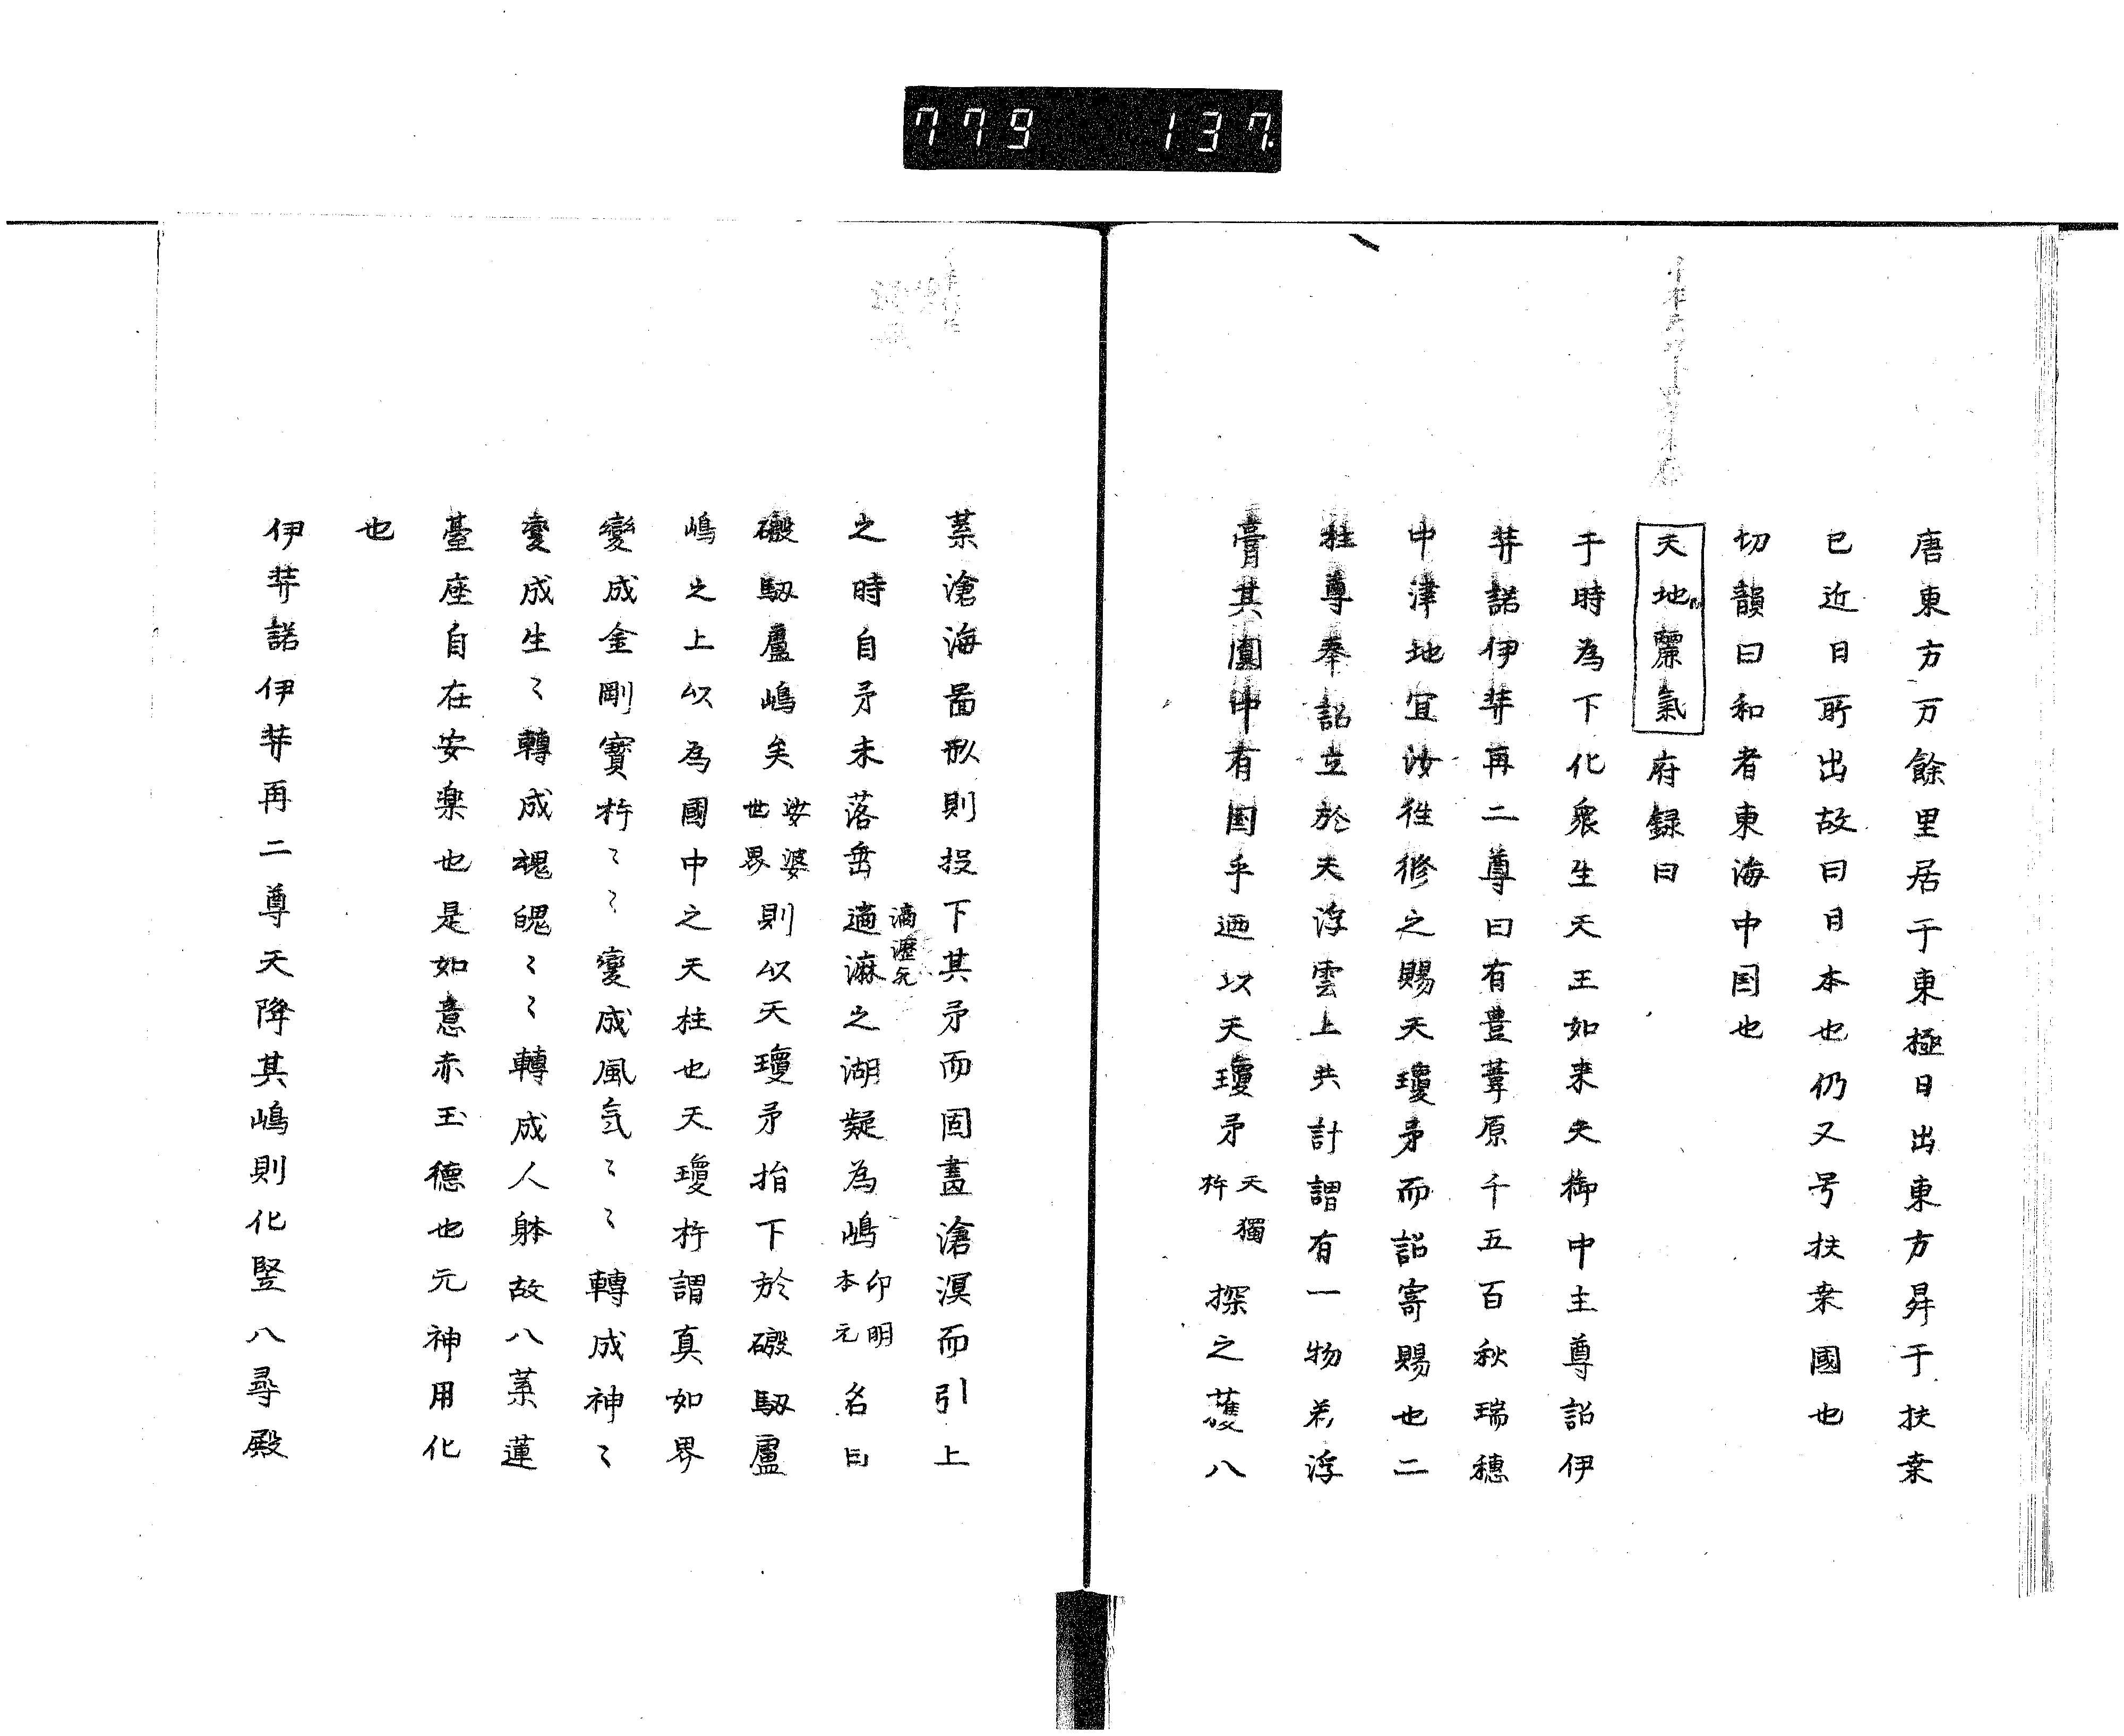 779 137
唐東方万餘里居于東極日出東方昇于扶桒
已近日所出故曰日本也仍又号扶桒國也
切韻曰和者東海中国也
天地麗氣府録曰
于時為下化衆生天王如来天御中主尊詔伊
弉諾伊弉再二尊曰有豊葦原千五百秋瑞穗
中津地宜汝徃修之賜天瓊矛而詔寄賜也二
柱尊奉詔立於天浮雲上共計謂有一物若浮
膏其圓中有国乎廼以天瓊矛
天獨
杵
探之䕶八
葉滄海啚形則投下其矛而固畫滄溟而引上
之時自矛末落畨適漭之湖凝為嶋
滴瀝先
印明
本元
名曰
磤馭盧嶋矣
娑婆
世界
則以天瓊矛指下於磤馭盧
嶋之上以為國中之天柱也天瓊杵謂真如界
變成金剛寳杵〻〻變成風気〻〻轉成神〻
變成生〻轉成魂魄〻〻轉成人躰故八葉蓮
臺座自在安楽也是如意赤玉德也元神用化
也
伊弉諾伊弉再二尊天降其嶋則化竪八尋殿